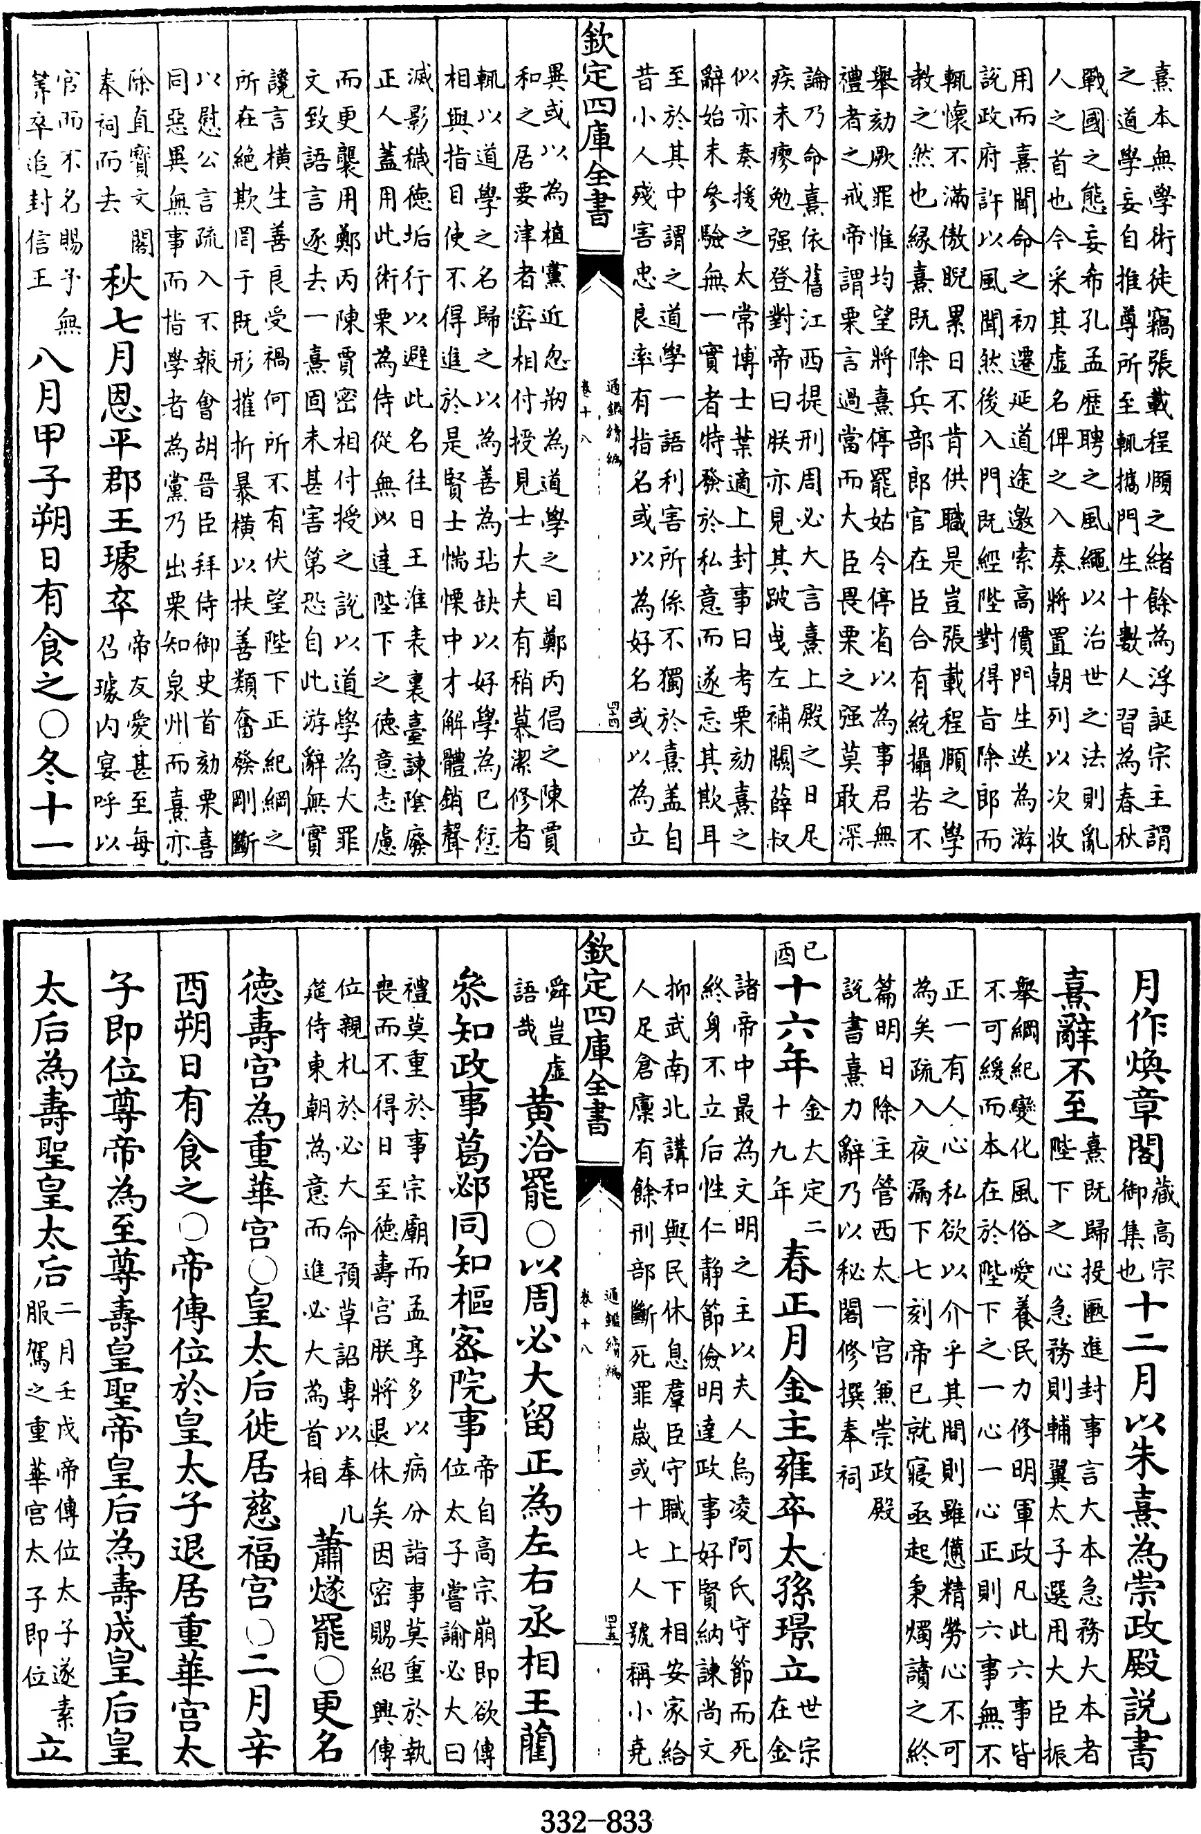 熹本無學術徒竊張載程頤之緒餘為浮誕宗主謂
之道學妄自推尊所至輒攜門生十數人習為春秋
戰國之態妄希孔孟歴聘之風繩以治世之法則亂
人之首也今采其虛名俾之入奏將置朝列以次收
用而熹聞命之初遷延道途邀索高價門生迭為游
說政府許以風聞然後入門既經陛對得旨除郎而
輒懷不滿傲睨累日不肯供職是豈張載程頤之學
教之然也縁熹既除兵部郎官在臣合有統攝若不
舉劾厥罪惟均望將熹停罷姑令停省以為事君無
禮者之戒帝謂栗言過當而大臣畏栗之强莫敢深
論乃命熹依舊江西提刑周必大言熹上殿之日足
疾未瘳勉强登對帝曰朕亦見其跛曵左補闕薛叔
似亦奏援之太常博士葉適上封事曰考栗劾熹之
辭始末參驗無一實者特發於私意而遂忘其欺耳
至於其中謂之道學一語利害所係不獨於熹盖自
昔小人殘害忠良率有指名或以為好名或以為立
欽定四庫全書
通鑑續編
卷十八
四十四
異或以為植黨近忽刱為道學之目鄭丙倡之陳賈
和之居要津者密相付授見士大夫有稍慕潔修者
輒以道學之名歸之以為善為玷缺以好學為已愆
相與指目使不得進於是賢士惴慄中才解體銷聲
滅影穢德垢行以避此名往日王淮表裏臺諫陰廢
正人蓋用此術栗為侍從無以達陛下之德意志慮
而更襲用鄭丙陳賈密相付授之説以道學為大罪
文致語言逐去一熹固未甚害第恐自此游辭無實
讒言横生善良受禍何所不有伏望陛下正紀綱之
所在絶欺罔于既形摧折暴横以扶善類奮發剛斷
以慰公言疏入不報會胡晉臣拜侍御史首劾栗喜
同惡異無事而指學者為黨乃出栗知泉州而熹亦
除直寶文閣
奉祠而去
秋七月恩平郡王璩卒
帝友愛甚至每
召璩内宴呼以
官而不名賜予無
筭卒追封信王
八月甲子朔日有食之○冬十一
月作煥章閣
藏高宗
御集也
十二月以朱熹為崇政殿說書
熹辭不至
熹既歸投匭進封事言大本急務大本者
陛下之心急務則輔翼太子選用大臣振
舉綱紀變化風俗愛養民力修明軍政凡此六事皆
不可緩而本在於陛下之一心一心正則六事無不
正一有人心私欲以介乎其間則雖憊精勞心不可
為矣疏入夜漏下七刻帝已就寢亟起秉燭讀之終
篇明日除主管西太一宮兼崇政殿
說書熹力辭乃以秘閣修撰奉祠
己
酉
十六年
金大定二
十九年
春正月金主雍卒太孫璟立
世宗
在金
諸帝中最為文明之主以夫人烏凌阿氏守節而死
終身不立后性仁靜節儉明達政事好賢納諫尚文
抑武南北講和與民休息羣臣守職上下相安家給
人足倉廩有餘刑部斷死罪歳或十七人號稱小堯
欽定四庫全書
通鑑續編
卷十八
四十五
舜豈虛
語哉
黄洽罷○以周必大留正為左右丞相王藺
參知政事葛邲同知樞宻院事
帝自高宗崩即欲傳
位太子嘗諭必大曰
禮莫重於事宗廟而孟享多以病分詣事莫重於執
喪而不得日至徳壽宮朕將退休矣因密賜紹興傳
位親札於必大命預草詔專以奉几
筵侍東朝為意而進必大為首相
蕭燧罷○更名
德壽宮為重華宮○皇太后徙居慈福宮○二月辛
酉朔日有食之○帝傳位於皇太子退居重華宮太
子即位尊帝為至尊壽皇聖帝皇后為壽成皇后皇
太后為壽聖皇太后
二月壬戌帝傳位太子遂素
服駕之重華宮太子即位
立
332-833